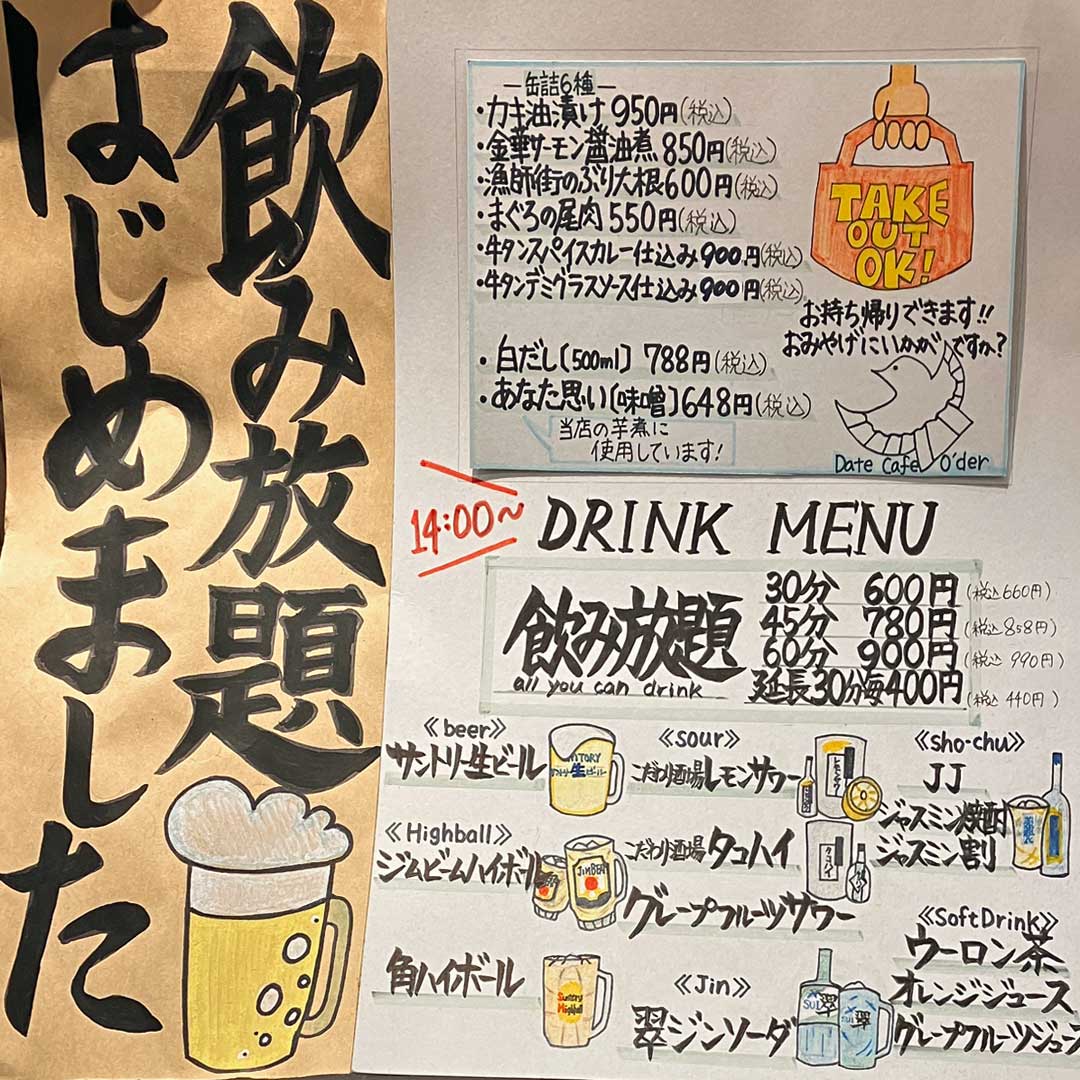 飲み放題
はじめました
―缶詰6種―
・カキ油漬け 950円(税込)
・金華サーモン醤油煮 850円(税込)
・漁師街のぶり大根 600円(税込)
・まぐろの尾肉 550円(税込)
・牛タンスパイスカレー仕込み 900円(税込)
・牛タンデミグラスソース仕込み 900円(税込)
・白だし〔500ml〕 788円(税込)
・あなた思い〔味噌〕648円(税込)
当店の芋煮に
使用しています!
TAKE
OUT
OK!
お持ち帰りできます!!
おみやげにいかがですか?
Date Cafe O'der
14:00~
DRINK MENU
飲み放題
all you can drink
30分 600円(税込660円)
45分 780円(税込858円)
60分 900円(税込990円)
延長30分毎400円(税込440円)
《beer》
サントリー生ビール
生ビール
《Highball》
ジムビームハイボール
JIM BEAM
角ハイボール
Suntory
Highball
《sour》
こだわり酒場レモンサワー
レモンサワー
こだわり酒場タコハイ
タコハイ
グレープフルーツサワー
《Jin》
翠ジンソーダ
翠
SUI
翠
SUI
《sho-chu》
JJ
ジャスミン焼酎
ジャスミン割
《SoftDrink》
ウーロン茶
オレンジジュース
グレープフルーツジュース